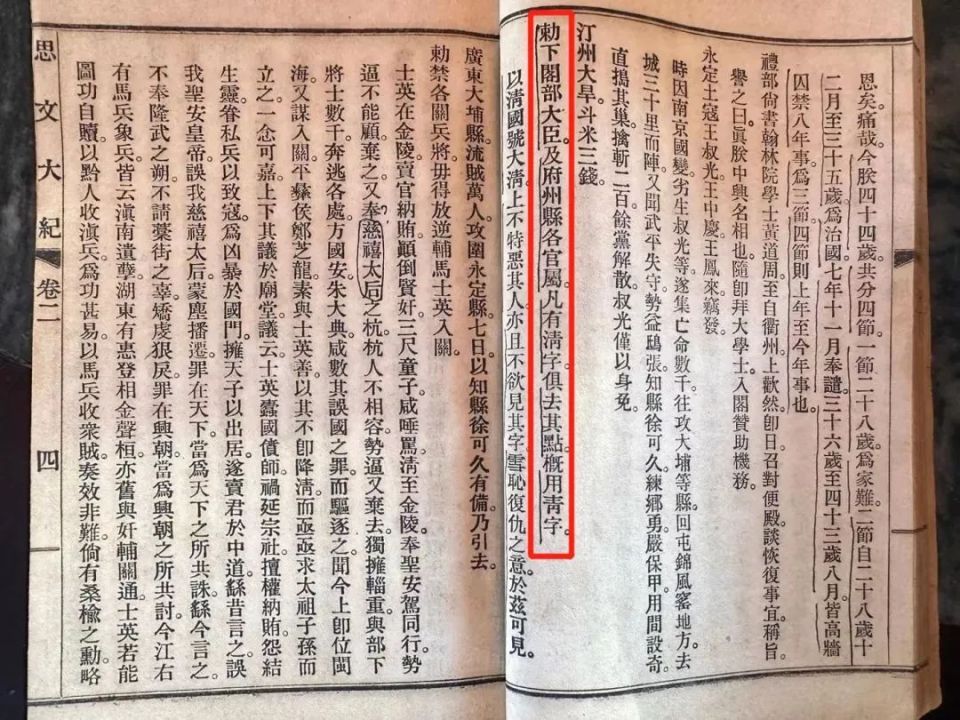 恩矣痛哉。今朕四十四歲。共分四節。一節二十八歲爲家難。二節自二十八歲十
二月至三十五歲。爲治國七年十一月奉譴。三十六歲至四十三歲八月。皆高牆
囚禁八年事。爲三節。四節則上年至今年事也。
禮部尚書翰林院學士黃道周。至自衢州。上歡然。卽日召對便殿。談恢復事宜。稱旨。
譽之曰。眞朕中興名相也。隨卽拜大學士。入閣贊助機務。
永定土寇王叔光。王中慶。王鳳來竊發。
時因南京國變。劣生叔光等。遂集亡命數千。往攻大埔等縣。回屯錦風窰地方。去
城三十里而陣。又聞武平失守。勢益鴟張。知縣徐可久。練鄉勇。嚴保甲。用間設奇。
直搗其巢。擒斬二百餘。黨解散。叔光僅以身免。
汀州大旱。斗米三錢。
勅下閣部大臣。及府州縣各官屬。凡有淸字俱去其點。槪用靑字。
以淸國號大淸。上不特惡其人。亦且不欲見其字。雪恥復仇之意。於茲可見。
廣東大埔縣流賊萬人。攻圍永定縣七日。以知縣徐可久有備。乃引去。
勅禁各關兵將毋得放逆輔馬士英入關。
士英在金陵。賣官納賄。顚倒賢奸。三尺童子。咸唾罵。淸至金陵。奉聖安駕同行。勢
逼不能顧。棄之。又奉慈禧太后之杭。杭人不相容。勢逼。又棄去。獨擁輜重。與部下
將士數千。奔逃各處。方國安。朱大典咸數其誤國之罪。而驅逐之。聞今上卽位閩
海。又謀入關。平彝侯鄭芝龍。素與士英善。以其不卽降淸而亟亟求太祖子孫而
立之。一念可嘉。上下其議於廟堂。議云。士英蠹國僨師。禍延宗社。擅權納賄。怨結
生靈。眷私兵以致寇。爲凶暴於國門。擁天子以出居。遂賣君於中道。繇昔言之。誤
我聖安皇帝。誤我慈禧太后。蒙塵播遷。罪在天下。當爲天下之所共誅。繇今言之。
不奉隆武之朔。不請藁街之辜。矯虔狠戾。罪在興朝。當爲興朝之所共討。今江右
有馬兵象兵。皆云滇南遺孽。湖東有惠登相金聲桓。亦舊與奸輔關通。士英若能
圖功自贖。以黔人收滇兵。爲功甚易。以馬兵收衆賊。奏效非難。倘有桑楡之勳。略
思文大紀 卷二 四